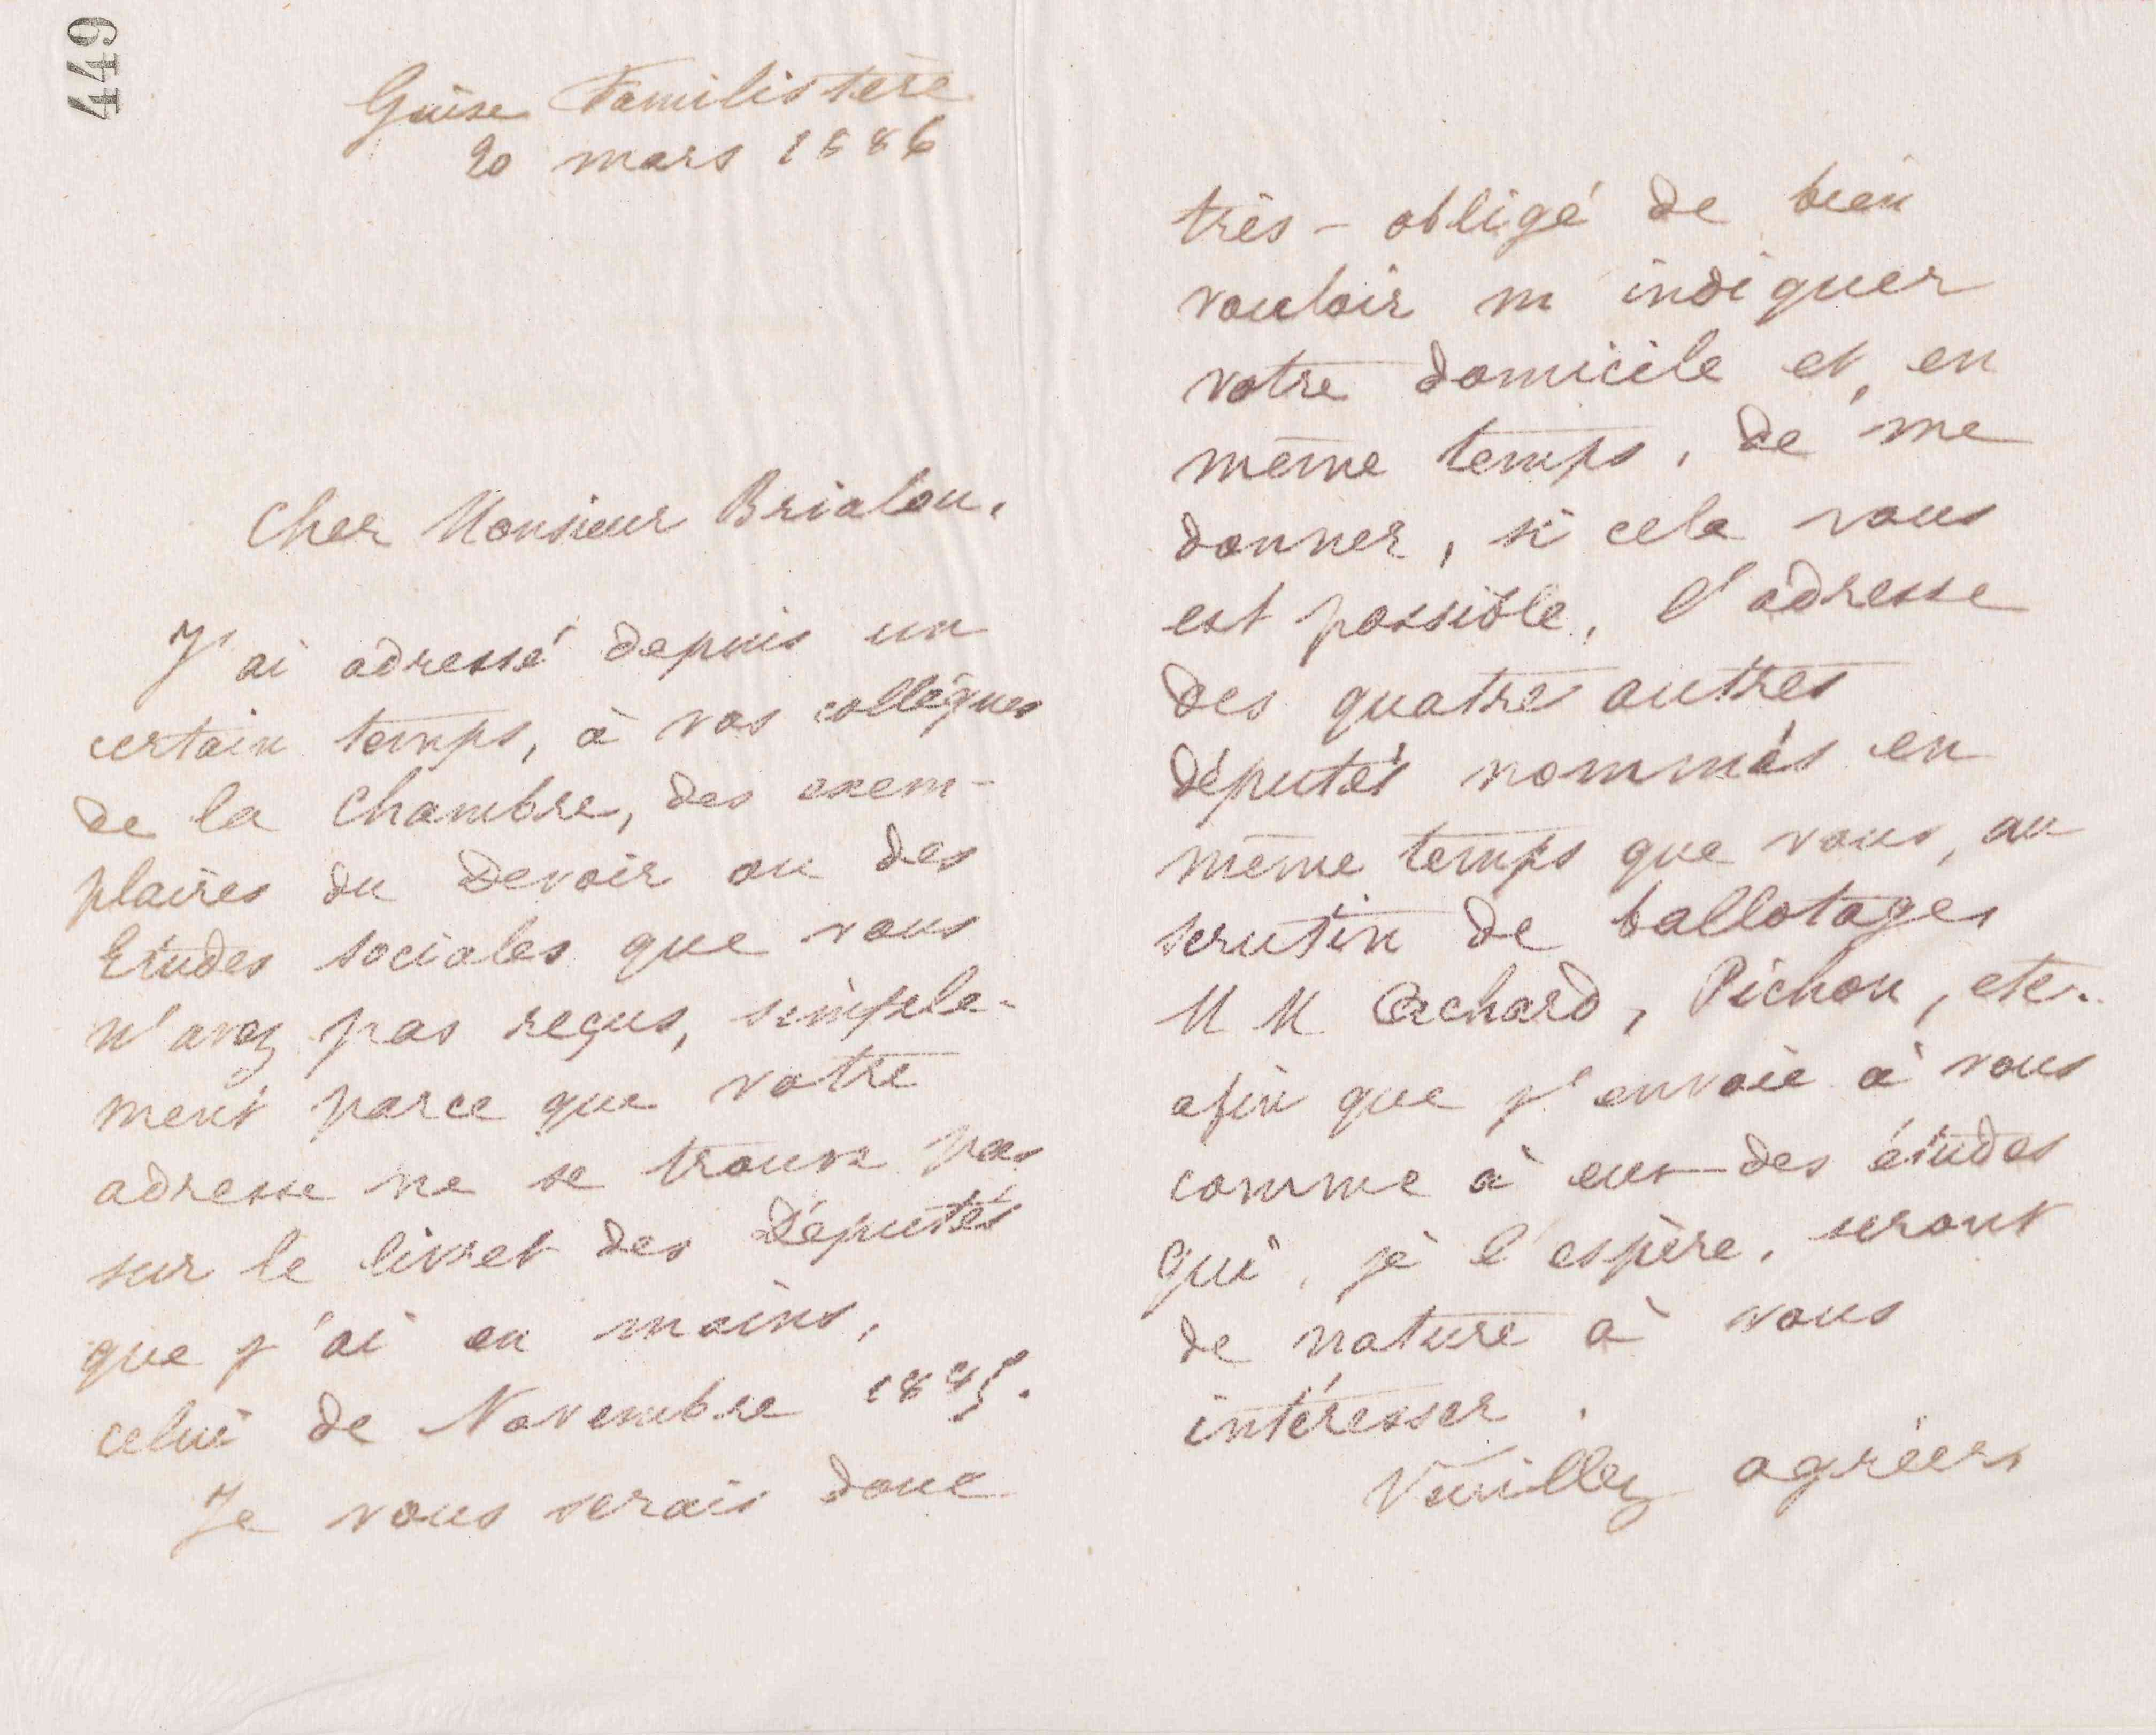 449
Guise Familistère
20 mars 1886
Cher Monsieur Brialou,
J'ai adressé depuis un
certain temps, à vos collègues
de la Chambre, des exem-
plaires du Devoir ou des
Etudes sociales que vous
n'avez pas reçus, simple-
ment parce que votre
adresse ne se trouve pas
sur le livret des Députés
que j'ai en mains,
celui de Novembre 1885.
Je vous serais donc
très-obligé de bien
vouloir m'indiquer
votre domicile et, en
même temps, de me
donner, si cela vous
est possible, l'adresse
des quatre autres
députés nommés en
même temps que vous, au
scrutin de ballotages
M M Achard, Pichon, etc..
afin que j'envoie à vous
comme à eux des études
qui, je l'espère, seront
de nature à vous
intéresser.
Veuillez agréer,